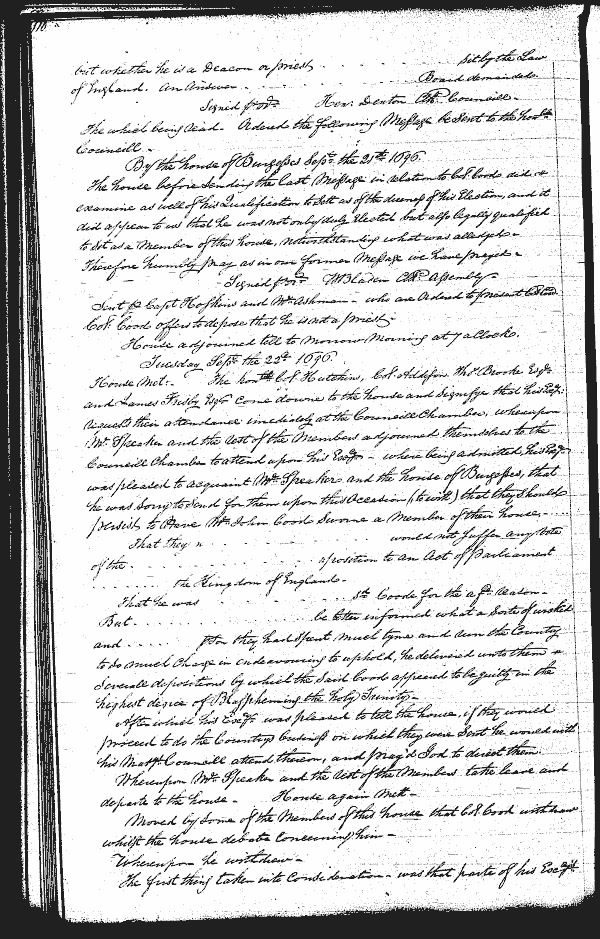 but whether he is a Deacon or priest . . . . . . . . sit by the Law
of England. An Answer . . . . . . . . Board demanded.
Signed p ordr Hen: Denton Clk. Councill.
The which being read. Ordered the following Message be sent to the honble
Councill.
By the house of Burgesses Sepr. the 21st 1696.
The house before sending the last Message in relation to Col. Coode did
examine as well of his Qualification to sitt as of the dueness of his Election, and it
did appear to us that he was not only duly Elected but also legally qualified
to sit as a Member of this house, notwithstanding what was alledged.
Therefore humbly pray as in our former Message we have prayed.
Signed p ordr W Bladen Clk. Assembly
Sent p Capt Hopkins and Mr. Ashman who are Ordered to present
Col. Cood offers to depose that he is not a priest.
House adjourned till to Morrow Morning at 7 a Clock.
Tuesday Sepr. the 22d. 1696.
House Met. The honble Col. Hutchins, Col. Addison, Thos. Brooke Esqr.
and James Frisby Esqr. come downe to the house and signifye that his Excy.
requests their attendance imediately at the Councill Chamber, whereupon
Mr. Speaker and the rest of the Members adjourned themselves to the
Councill Chamber to attend upon his Excy. where being admitted his Excy.
was pleased to acquaint Mr. Speaker and the house of Burgesses, that
he was sorry to send for them upon this Occasion (to wit) that they should
persist to have Mr. John Cood Sworne a Member of their house.
That they . . . . . . . . would not suffer any Vote
of the . . . . . . . . oposition to an Act of Parliament
. . . . . . . . the Kingdom of England.
That he was . . . . . . . . Coode for the afd. reason.
But . . . . . . . . be better informed what a sorte of wicked
and . . . . . for they had spent much tyme and run the Country
to so much Charge in endeavouring to uphold, he delivered unto them
severall depositions by which the said Coode appeared to be guilty in the
highest degree of Blaspheming the holy Trinity.
After which his Excy. was pleased to tell the house, if they would
proceed to do the Countrys business on which they were sent he would with
his Matys Councill attend thereon, and pray'd God to direct them.
Whereupon Mr. Speaker and the rest of the Members take leave and
departe to the house. House again Mett.
Moved by some of the Members of this house that Col. Cood withdraw
whilst the house debate Concerning him.
Whereupon he withdrew.
The first thing taken into Consideration was that parte of his Excys.